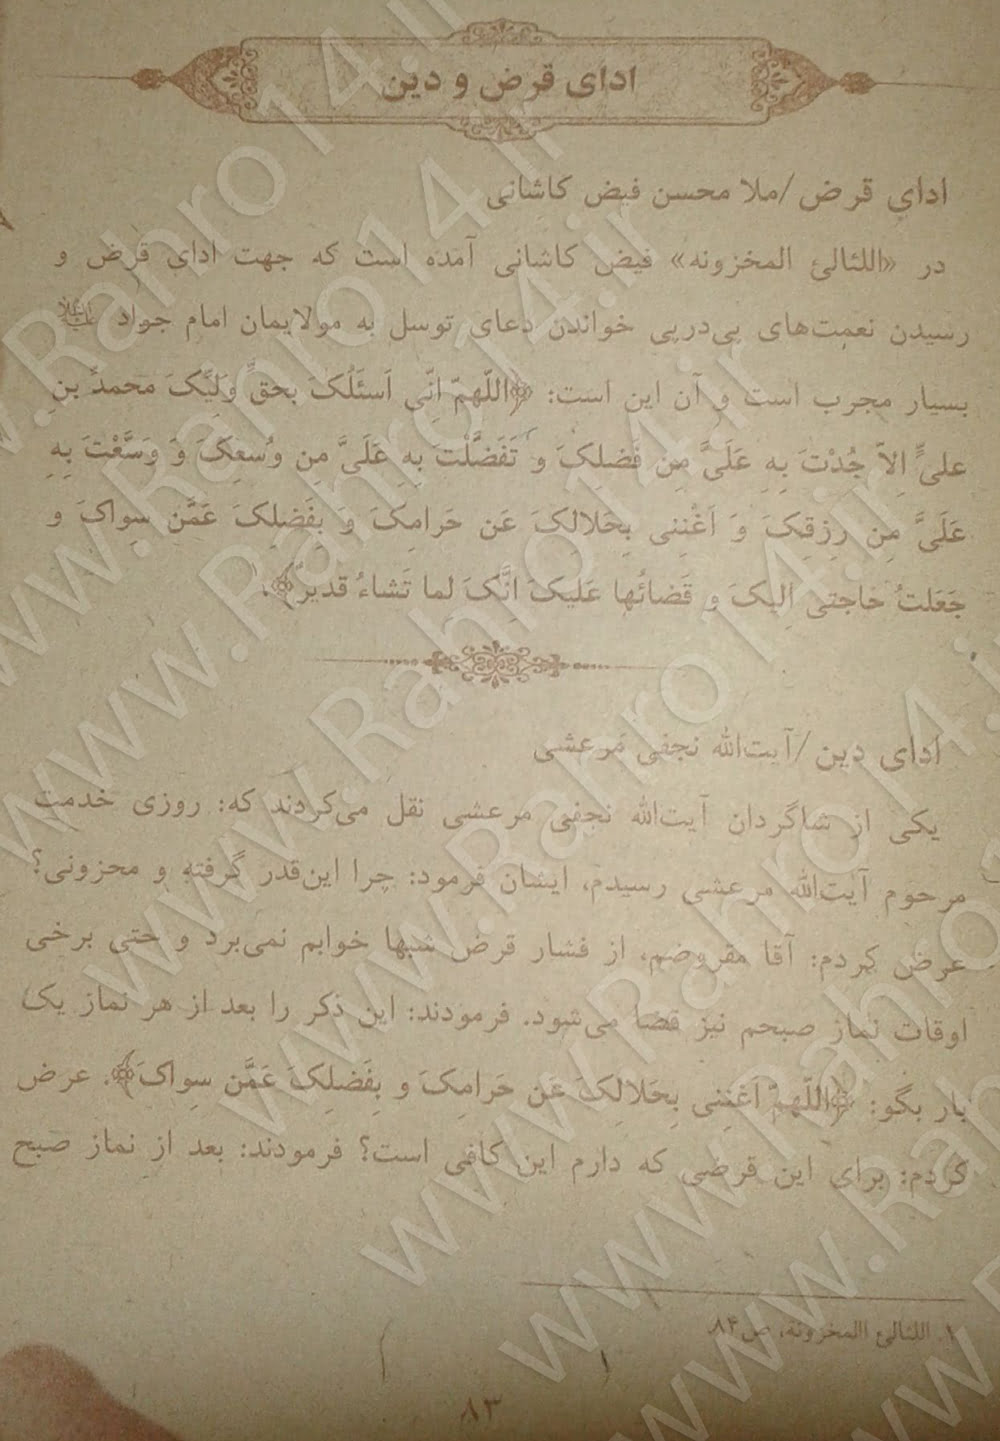 ادای قرض و دین
ادای قرض /ملا محسن فیض کاشانی
در «اللئالئ المخزونه» فیض کاشانی آمده است که جهت ادای قرض و
رسیدن نعمت‌های پی‌درپی خواندن دعای توسل به مولایمان امام جواد علیه‌السلام
بسیار مجرب است و آن این است: ﴿اللّهمّ اِنّی اَسئَلُکَ بحقِّ وَلیِّکَ محمدِ بنِ
علیٍّ اِلاّ جُدْتَ بِهِ عَلَیَّ مِن فَضلِکَ و تَفَضَّلْتَ بِهِ عَلَیَّ مِن وُسعِکَ وَ وَسَّعْتَ بِهِ
عَلَیَّ مِن رِزقِکَ وَ اَغْنِنی بِحَلالکَ عَن حَرامِکَ وَ بِفَضلِکَ عَمَّن سِواکَ و
جَعَلتُ حاجتی اِلیکَ و قَضائُها عَلیکَ اِنَّکَ لما تَشاءُ قدیرٌ﴾.¹
ادای دین /آیت‌الله نجفی مرعشی
یکی از شاگردان آیت‌الله نجفی مرعشی نقل می‌کردند که: روزی خدمت
مرحوم آیت‌الله مرعشی رسیدم، ایشان فرمود: چرا این‌قدر گرفته و محزونی؟
عرض کردم: آقا مقروضم، از فشار قرض شبها خوابم نمی‌برد و حتی برخی
اوقات نماز صبحم نیز قضا می‌شود. فرمودند: این ذکر را بعد از هر نماز یک
بار بگو: ﴿اللّهمّ اَغْنِنی بِحَلالِکَ عَن حَرامِکَ و بِفَضلِکَ عَمَّن سِواکَ﴾. عرض
کردم: برای این قرضی که دارم این کافی است؟ فرمودند: بعد از نماز صبح
۱. اللئالئ االمخزونة، ص۸۴
۸۳
www.Rahro14.ir
www.Rahro14.ir
www.Rahro14.ir
www.Rahro14.ir
www.Rahro14.ir